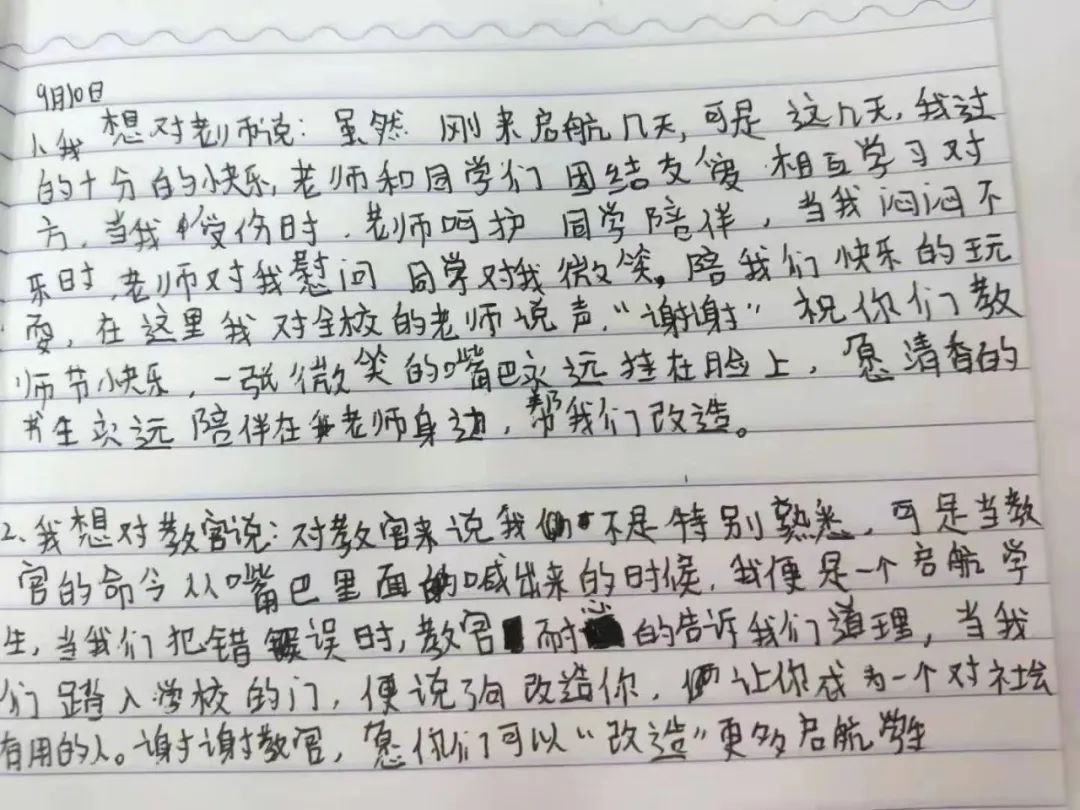 9月10日
1、我想对老师说：虽然 刚来启航几天,可是 这几天,我过
的十分的快乐,老师和同学们 团结友爱 相互学习对
方,当我受伤时,老师呵护 同学陪伴,当我闷闷不
乐时,老师对我慰问 同学对我微笑,陪我们快乐的玩
耍,在这里我对全校的老师说声,“谢谢”祝你们教
师节快乐,一张微笑的嘴巴永远挂在脸上,愿清香的
书生永远 陪伴在老师身边,帮我们改造。
2、我想对教官说:对教官来说我 不是特别熟悉,可是当教
官的命令从嘴巴里面喊出来的时候,我便是一个启航学
生,当我们犯错误时,教官耐心的告诉我们道理,当我
们踏入学校的门,便说了句改造你,让你成为一个对社会
有用的人。谢谢教官,愿你们可以“改造”更多启航学生